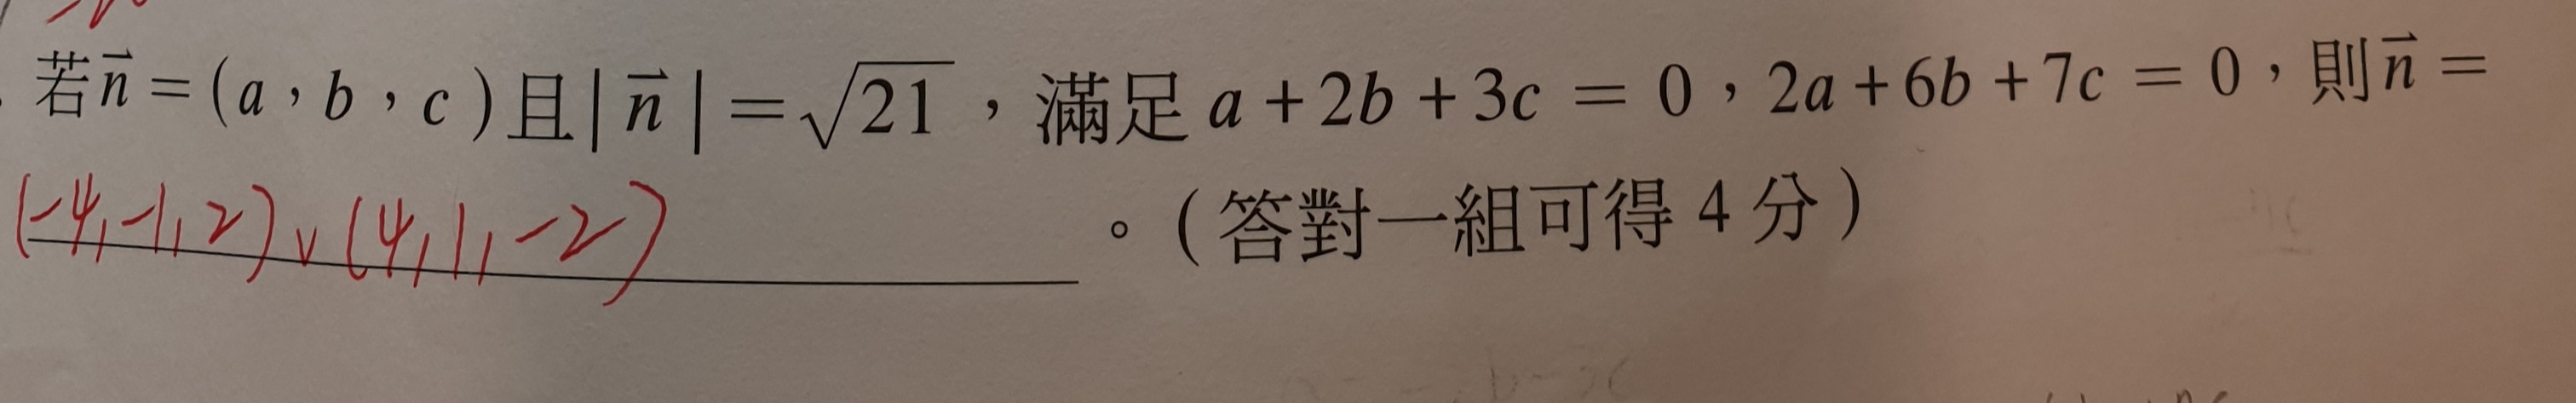 若n⃗ = (a,b,c)且|n⃗| = √21,滿足a+2b+3c = 0,2a+6b+7c = 0,則n⃗ =
(-4,-1,2)v(4,1,-2)。(答對一組可得4分)